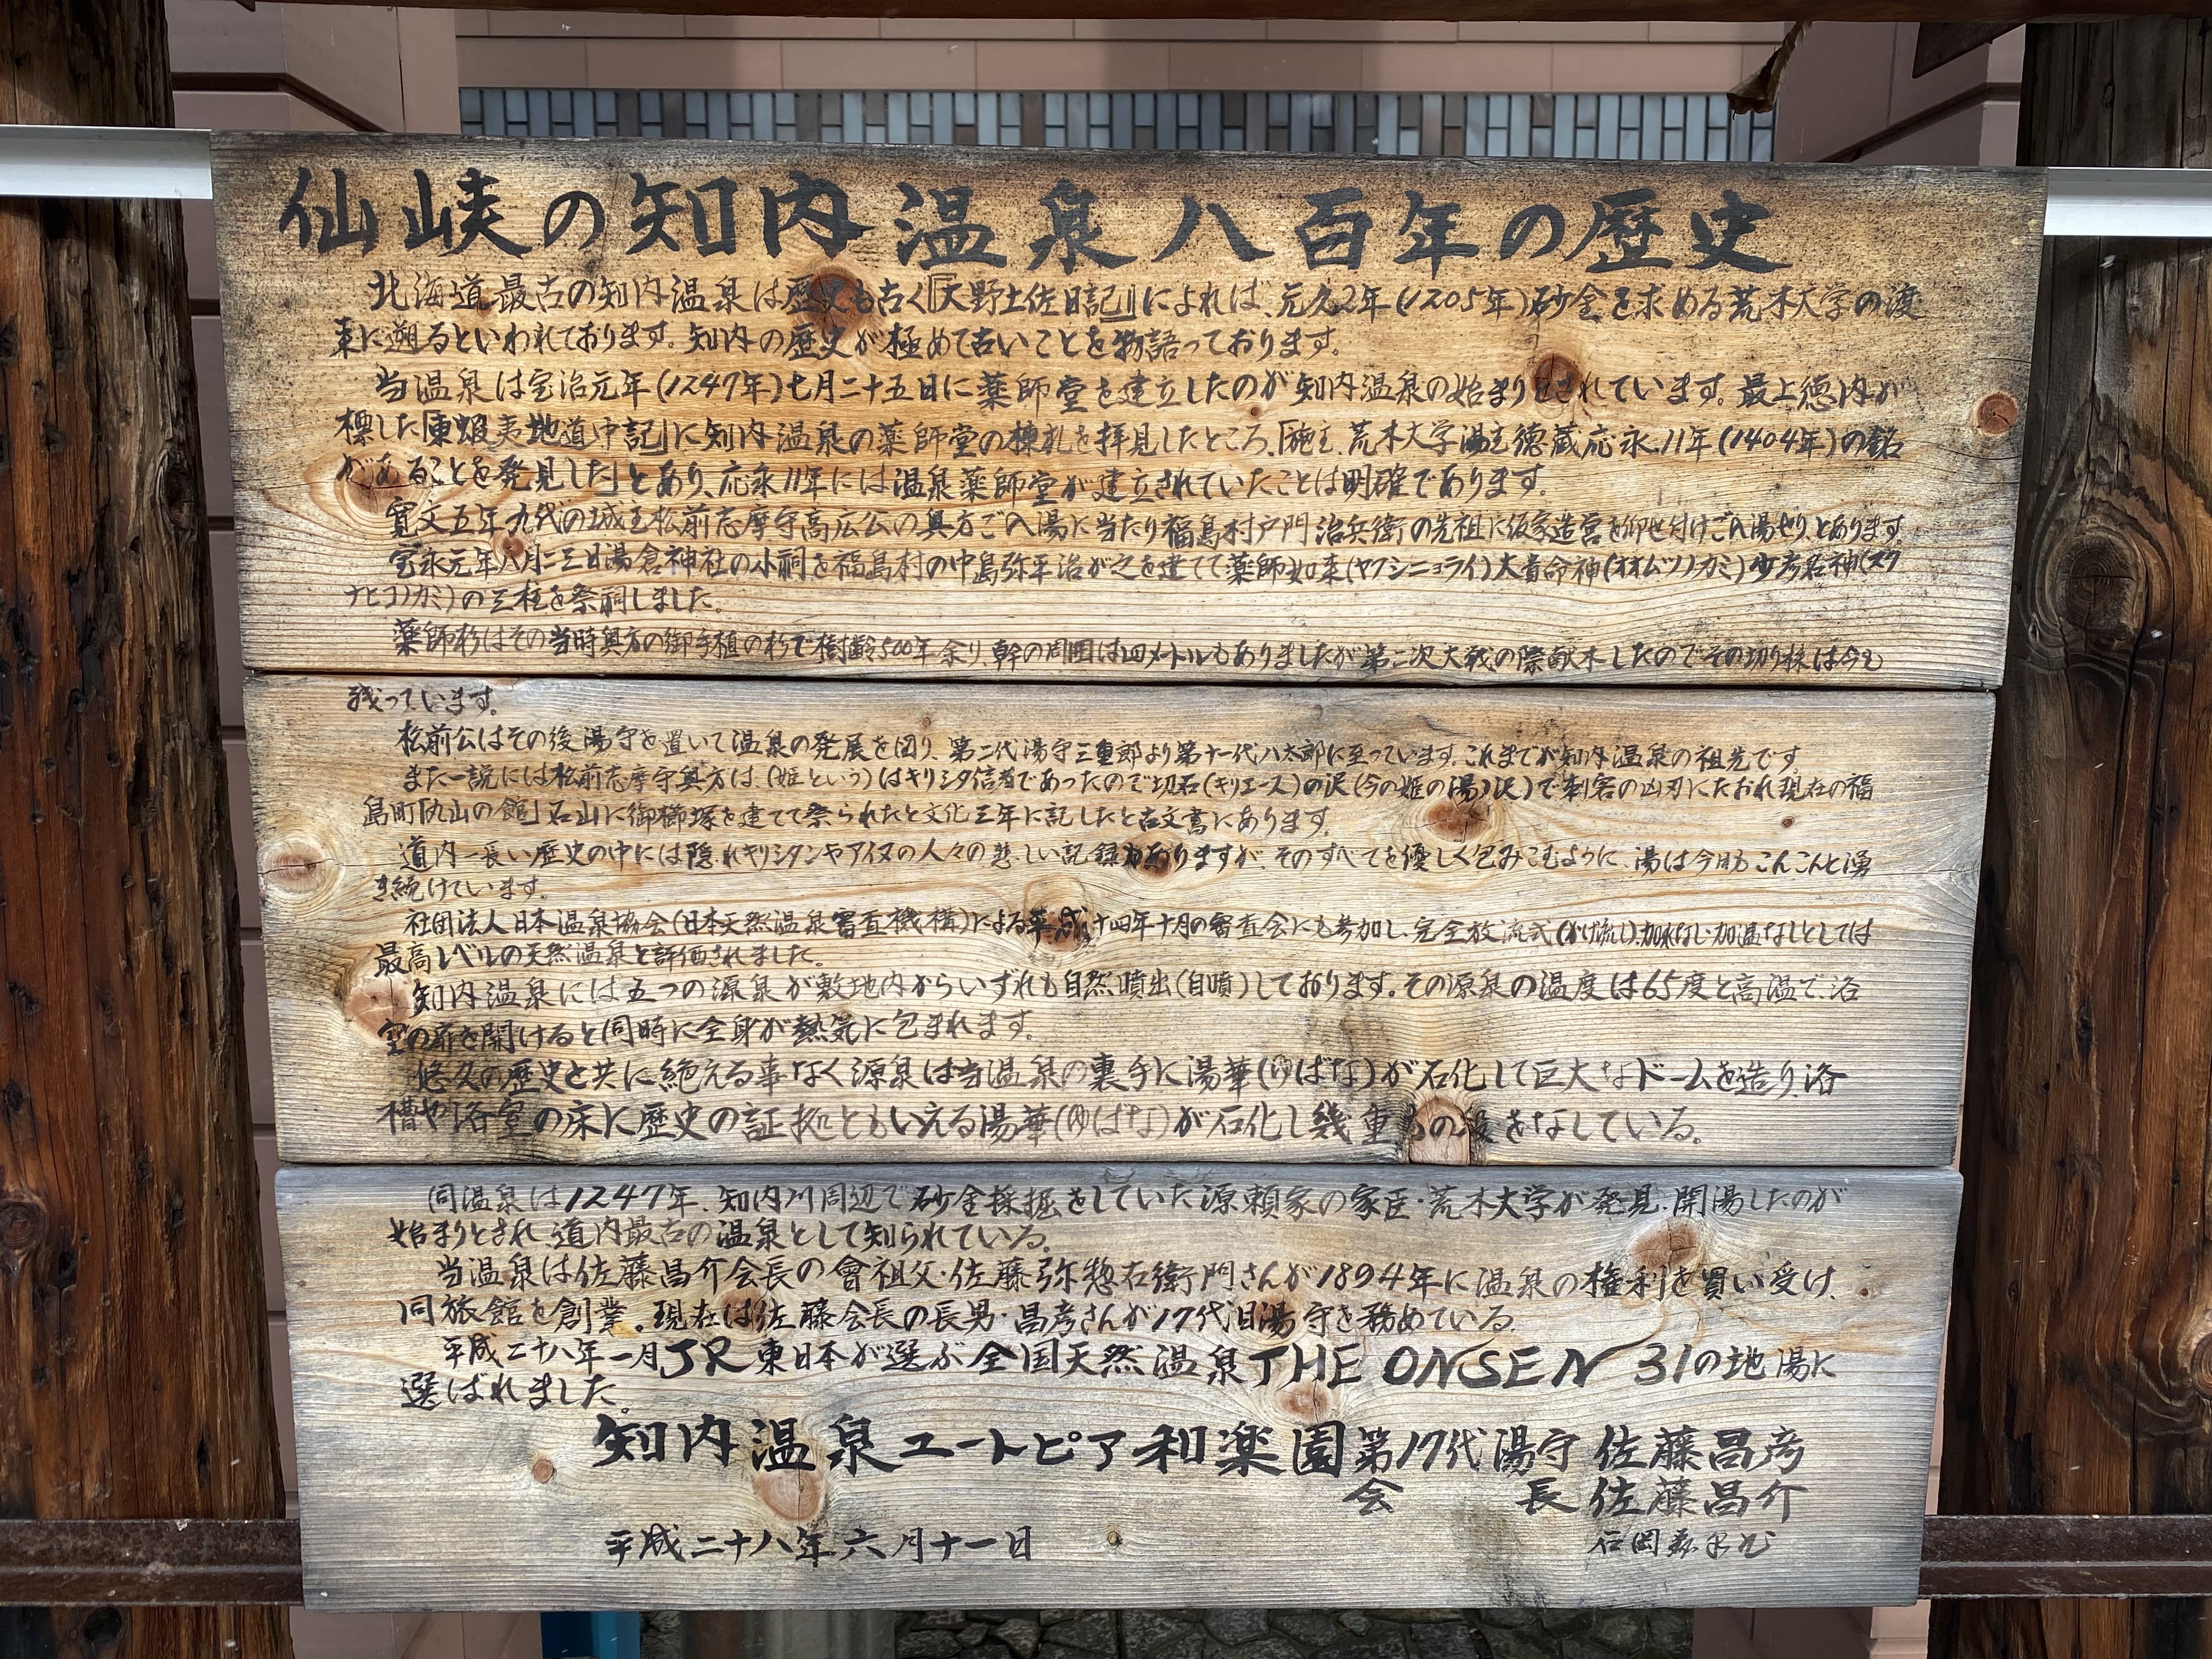 仙峡の知内温泉八百年の歴史
北海道最古の知内温泉は歴史も古く『大野土佐日記』によれば、元久2年(1205年)砂金を求める荒木大学の渡
来に遡るといわれております。知内の歴史が極めて古いことを物語っております。
当温泉は宝治元年(1247年)七月二十五日に薬師堂を建立したのが知内温泉の始まりとされています。最上徳内が
標した「東蝦夷地道中記」に知内温泉の薬師堂の棟札を拝見したところ、「施主、荒木大学湯主徳蔵応永11年(1404年)の銘
があることを発見した」とあり、応永11年には温泉薬師堂が建立されていたことは明確であります。
寛文五年九代の城主松前志摩守高広公の奥方ご入湯に当たり福島村戸門治兵衛の先祖に仮家造営を仰せ付けご入湯せり、とあります。
宝永元年八月二三日湯倉神社の小祠を福島村の中島弥平治が之を建てて薬師如来(ヤクシニョライ)大貴命神(オオムツノカミ)少彦名神(スク
ナヒコノカミ)の三柱を祭祠しました。
薬師杉はその当時奥方の御手植の杉で樹齢500年余り、幹の周囲は四メートルもありましたが第二次大戦の際献木したのでその切り株は今も
残っています。
松前公はその後湯守を置いて温泉の発展を図り、第二代湯守三重郎より第十一代八太郎に至っています。これまでが知内温泉の祖先です
また一説には松前志摩守奥方は、(姫という)はキリシタ信者であったので切石(キリエース)の沢(今の姫の湯ノ沢)で刺客の凶刃にたおれ現在の福
島町「丸山の館」石山に御櫛塚を建てて祭られたと文化三年に記したと古文書にあります。
道内一長い歴史の中には隠れキリシタンやアイヌの人々の悲しい記録もありますが、そのすべてを優しく包みこむように、湯は今日もこんこんと湧
き続けています。
社団法人日本温泉協会(日本天然温泉審査機構)による平成十四年十月の審査会にも参加し、完全放流式(かけ流し)、加水なし・加温なしとしては
最高レベルの天然温泉と評価されました。
知内温泉には五つの源泉が敷地内からいずれも自然噴出(自噴)しております。その源泉の温度は65度と高温で、浴
室の扉を開けると同時に全身が熱気に包まれます。
悠久の歴史と共に絶える事なく源泉は当温泉の裏手に湯華(ゆばな)が石化して巨大なドームを造り、浴
槽や浴室の床に歴史の証拠ともいえる湯華(ゆばな)が石化し幾重もの波をなしている。
同温泉は1247年、知内川周辺で砂金採掘をしていた源頼家の家臣・荒木大学が発見、開湯したのが
始まりとされ、道内最古の温泉として知られている。
当温泉は佐藤昌介会長の曾祖父・佐藤弥惣右衛門さんが1894年に温泉の権利を買い受け、
同旅館を創業。現在は佐藤会長の長男・昌彦さんが17代目湯守を務めている。
平成二十八年一月JR東日本が選ぶ全国天然温泉THE ONSEN 31の地湯に
選ばれました。
知内温泉ユートピア和楽園第17代湯守 佐藤昌彦
会 長 佐藤昌介
平成二十八年六月十一日